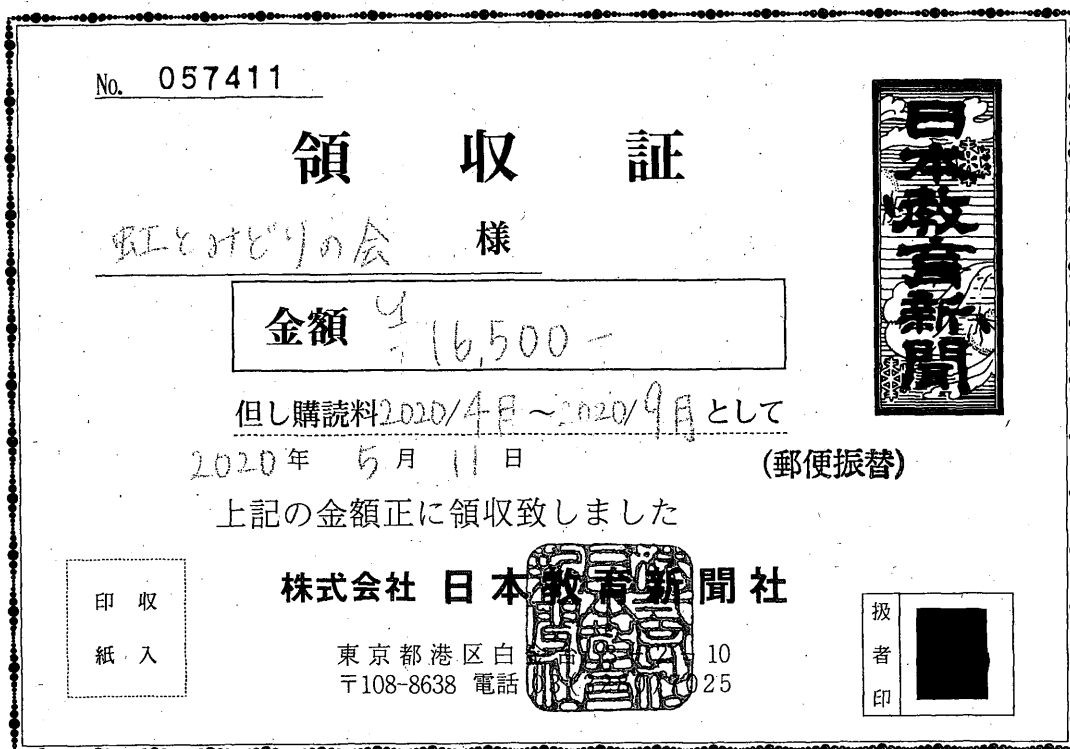 No. 057411
領収証
虹とみどりの会 様
金額 ¥16,500-
但し購読料2020/4月～2020/9月として
2020年 5月 11日
(郵便振替)
上記の金額正に領収致しました
株式会社 日本教育新聞社
東京都港区白 10
〒108-8638 電話 025
収入
印紙
扱者印
日本教育新聞